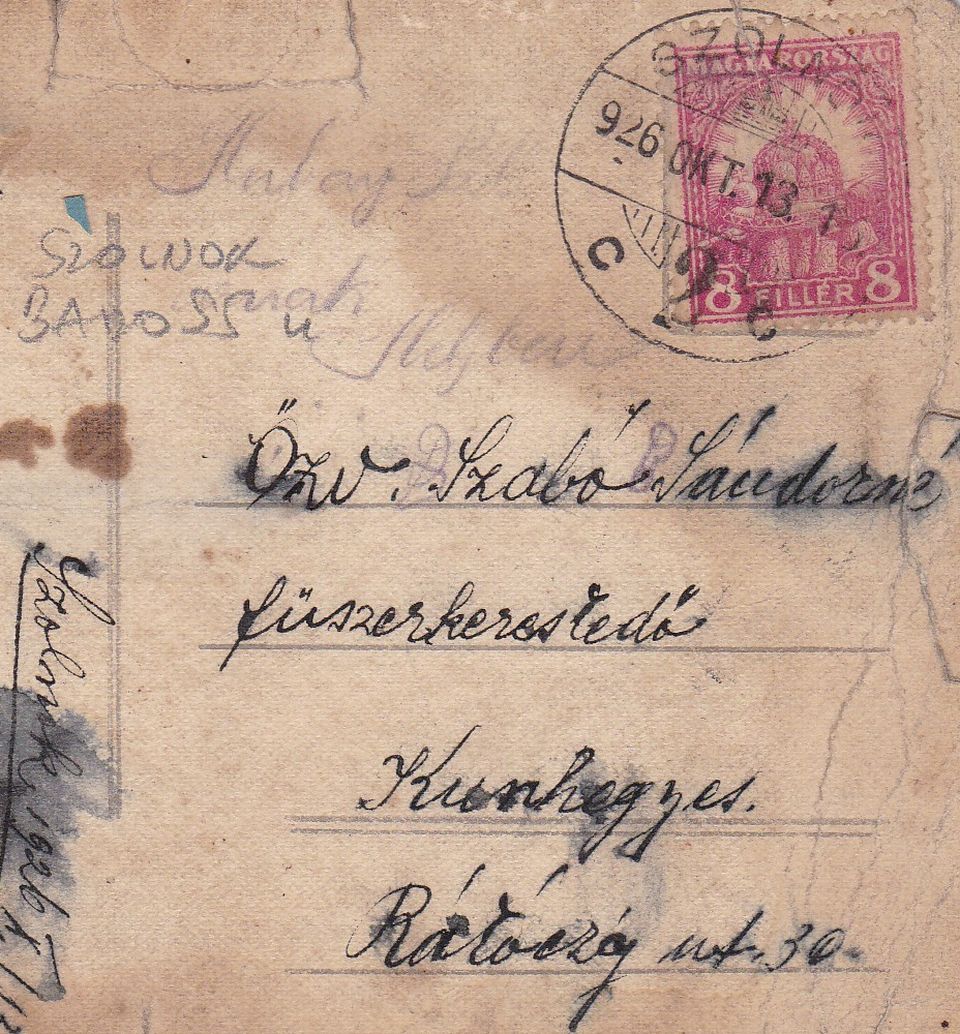 SZOLNOK
926 OKT. 13. 1
C 2 c
MAGYARORSZÁG
8 FILLÉR 8
SZOLNOK
BAROSS u
Helyben
Özv. Szabó Sándorné
füszerkerestedő
Kunhegyes.
Rátóczy ut. 30.
Szolnok, 1926 X/13